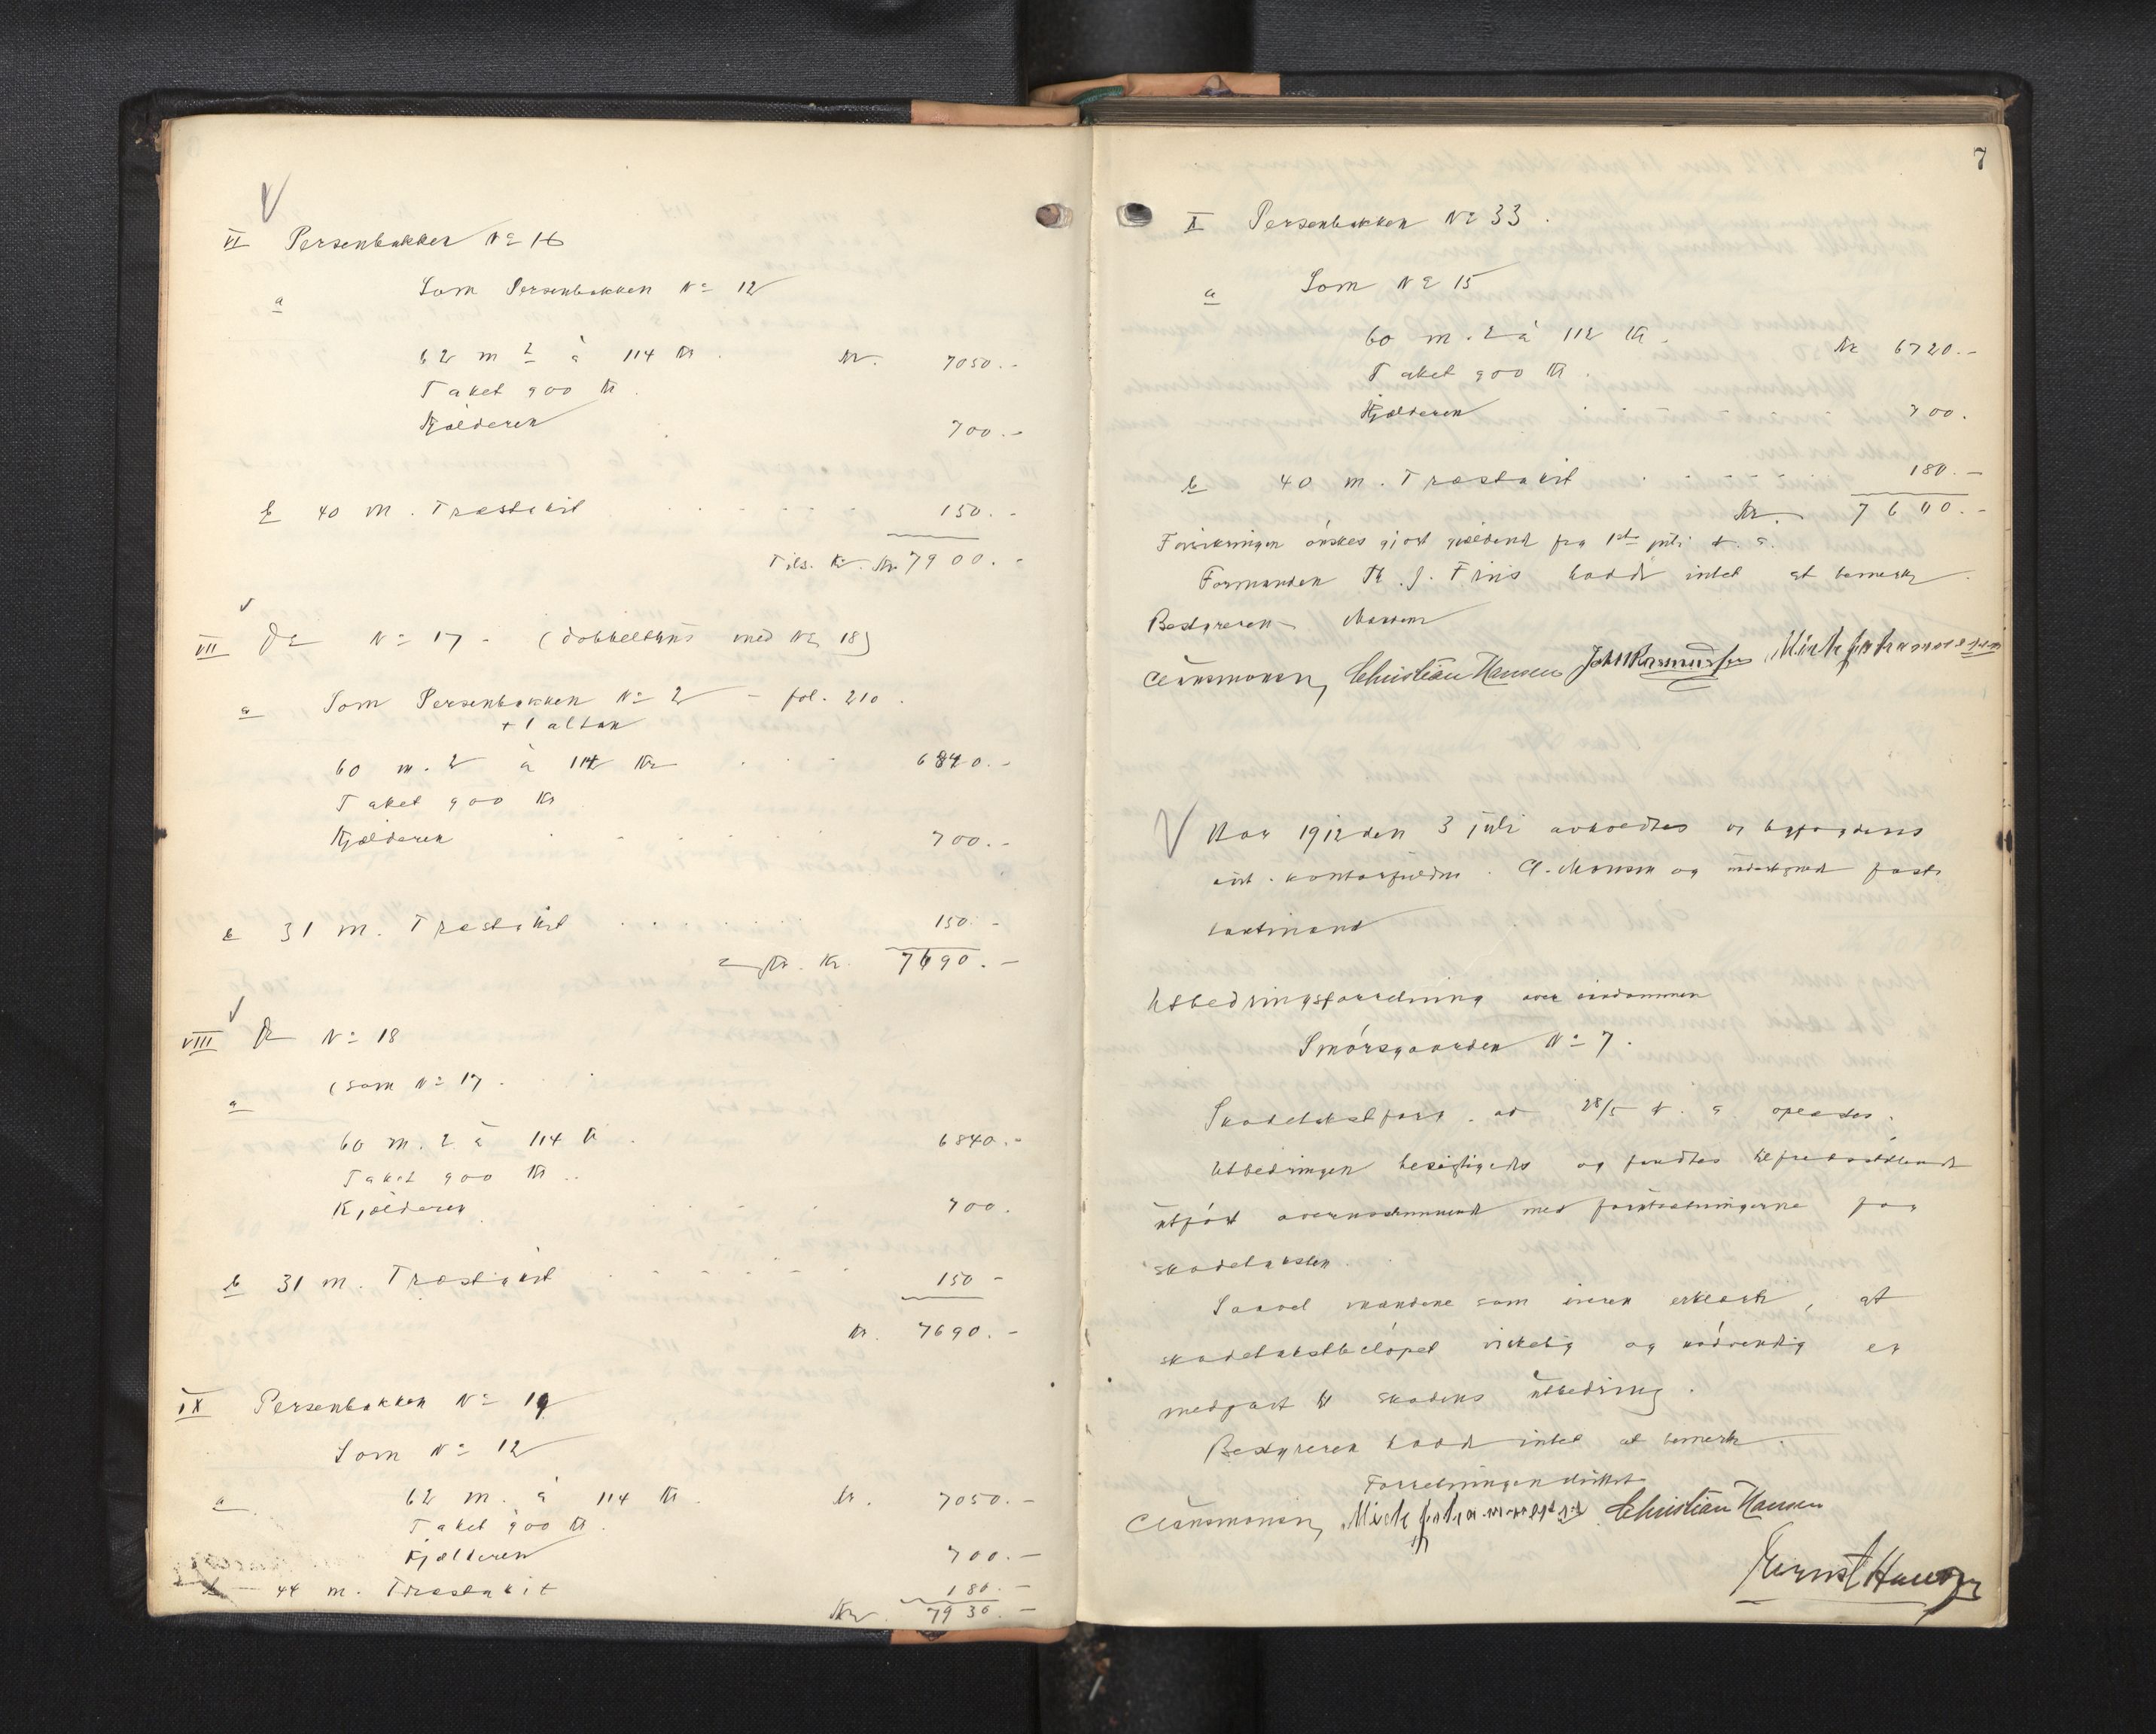 VI Persenbakken № 16
a Som Persenbakken № 12
62 m 2 à 114 Kr. Kr. 7050.-
Taket 900 Kr.
Kjælderen 700.-
b 40 m. Træstakit 150.-
Tils. Kr. 7900.-
VII Do № 17 - (dobbelthus med № 18)
a Som Persenbakken № 2 - fol. 210.
+ 1 altan
60 m. 2 à 114 Kr 6840.-
Taket 900 Kr
Kjælderen 700.-
b 31 m. Træstakit 150.-
Kr. 7690.-
VIII Do № 18
(som № 17.
a
60 m. 2 à 114 Kr. 6840.-
Taket 900 Kr.
Kjælderen 700.
b 31 m. Træstakit 150-
Kr. 7690.-
IX Persenbakken № 19
Som № 12
a 62 m. à 114 Kr. Kr. 7050.-
Taket 900 Kr.
Kjælderen 700.-
b 44 m. Træstakit 180.-
Kr. 7930.-
7
X Persenbakken № 33.
a Som № 15
60 m. 2 à 112 Kr. Kr 6720.-
Taket 900 Kr.
Kjælderen 700.
b 40 m. Træstakit 180.-
Kr. 7600.-
Forsikringen ønskes gjort gjældende fra 1ste juli d. a.
Formanden Th. J. Friis hadde intet at bemerke.
Bestyreren
Cl. Monsen Christian Hansen Joh Rasmussen
Aar 1912 den 3 juli avholdtes av byfogdens
aut. kontorfuldm. Cl. Monsen og undertegnede faste
takstmænd
Utbedringsforretning over eiendommen
Smørsgaarden № 7.
Skadetakstforr. av 28/5 d. a. oplæstes.
Utbedringen besigtigedes og fandtes tilfredsstillende
utført overensstemmende med forutsætningerne for
skadetaksten.
Saavel mændene som eieren erklærte, at
skadetakstbeløpet virkelig og nødvendig er
medgaat til skadens utbedring.
Bestyreren hadde intet at bemerke.
Forretningen sluttet
Cl. Monsen Christian Hansen